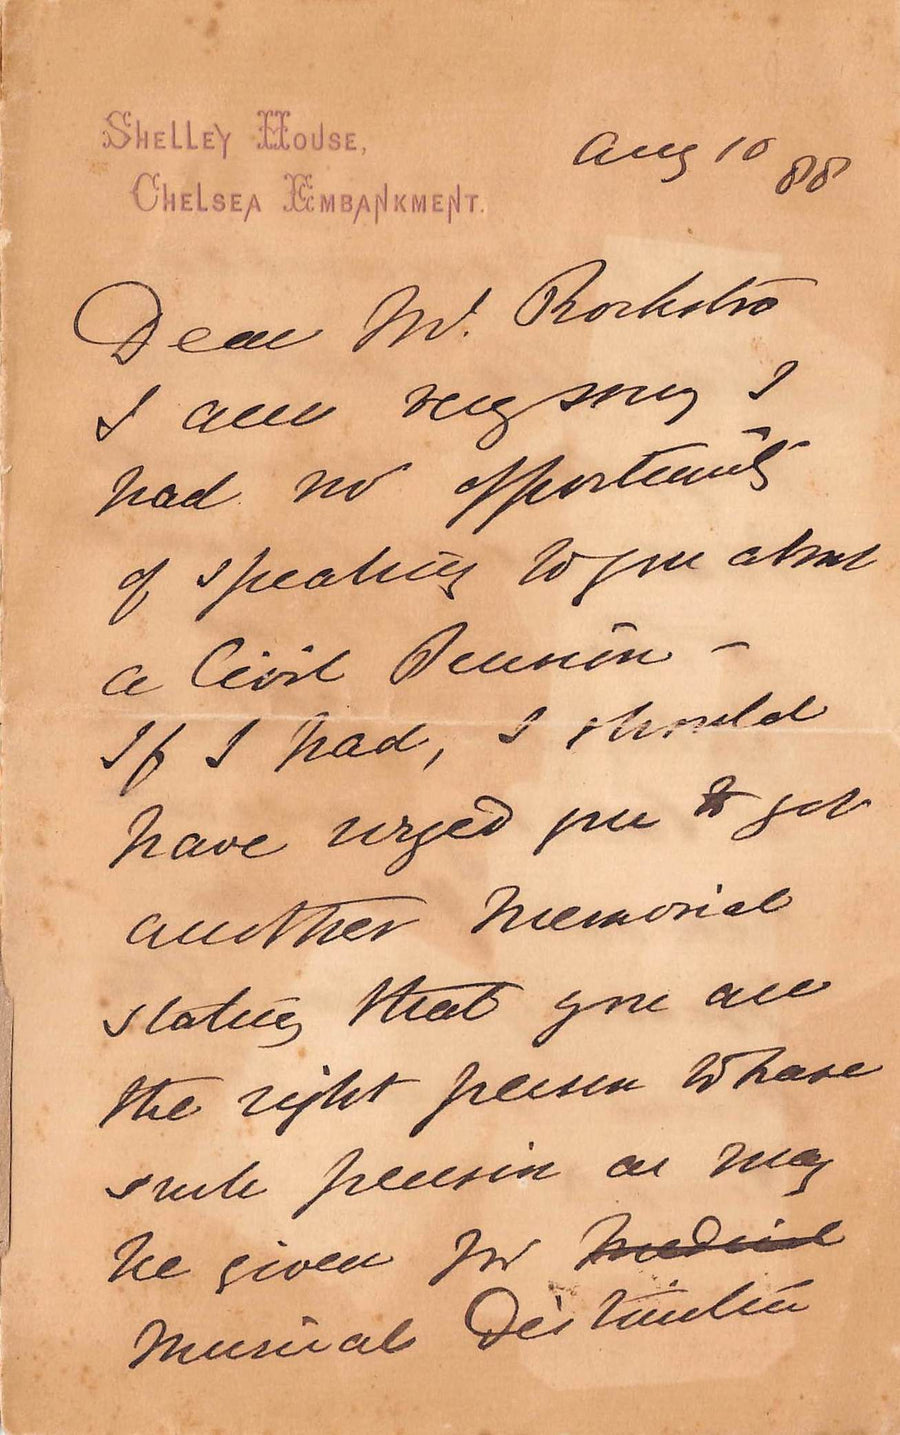 Shelley House,
Chelsea Embankment.
Aug 10
88
Dear Mr. Rockstro
I am very sorry I
had no opportunity
of speaking to you about
a Civil Pension –
If I had, I should
have urged you to get
another Memorial
stating that you are
the right person to have
such pension as may
be given for Medical
Musical Distinction